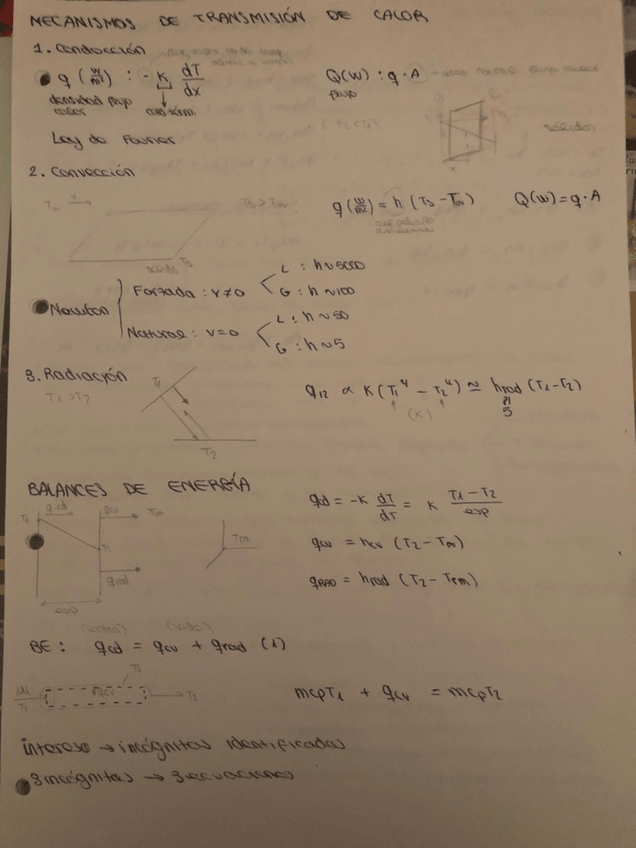 MECANISMOS DE TRANSMISIÓN DE CALOR
1. Conducción
q (W/m²) : - K dT/dx
Q(W) : q · A
densidad flujo calor
cond. térm.
flujo
(T2 < T1)
sólidos
Ley de Fourier
2. Convección
T∞
Ts > T∞
q (W/m²) = h (Ts - T∞)
Q(W) = q · A
sólido Ts
Newton
Forzada : v≠0
L : h ~ 5000
G : h ~ 100
Natural : v=0
L : h ~ 50
G : h ~ 5
3. Radiación
T1 > T2
T1
T2
q12 ∝ K (T1⁴ - T2⁴) ≃ hrad (T1 - T2)
(K)
5
BALANCES DE ENERGÍA
T1 qcd qcv T∞
T2
qrad
esp
Trm
qcd = -K dT/dT = K T1 - T2/esp
qcv = hcv (T2 - T∞)
qRAD = hrad (T2 - Trm)
(entra) (sale)
BE : qcd = qcv + qrad (1)
Ts
m
T1
qcv
T2
mcpT1 + qcv = mcpT2
interesa → incógnitas identificadas
3 incógnitas → 3 ecuaciones